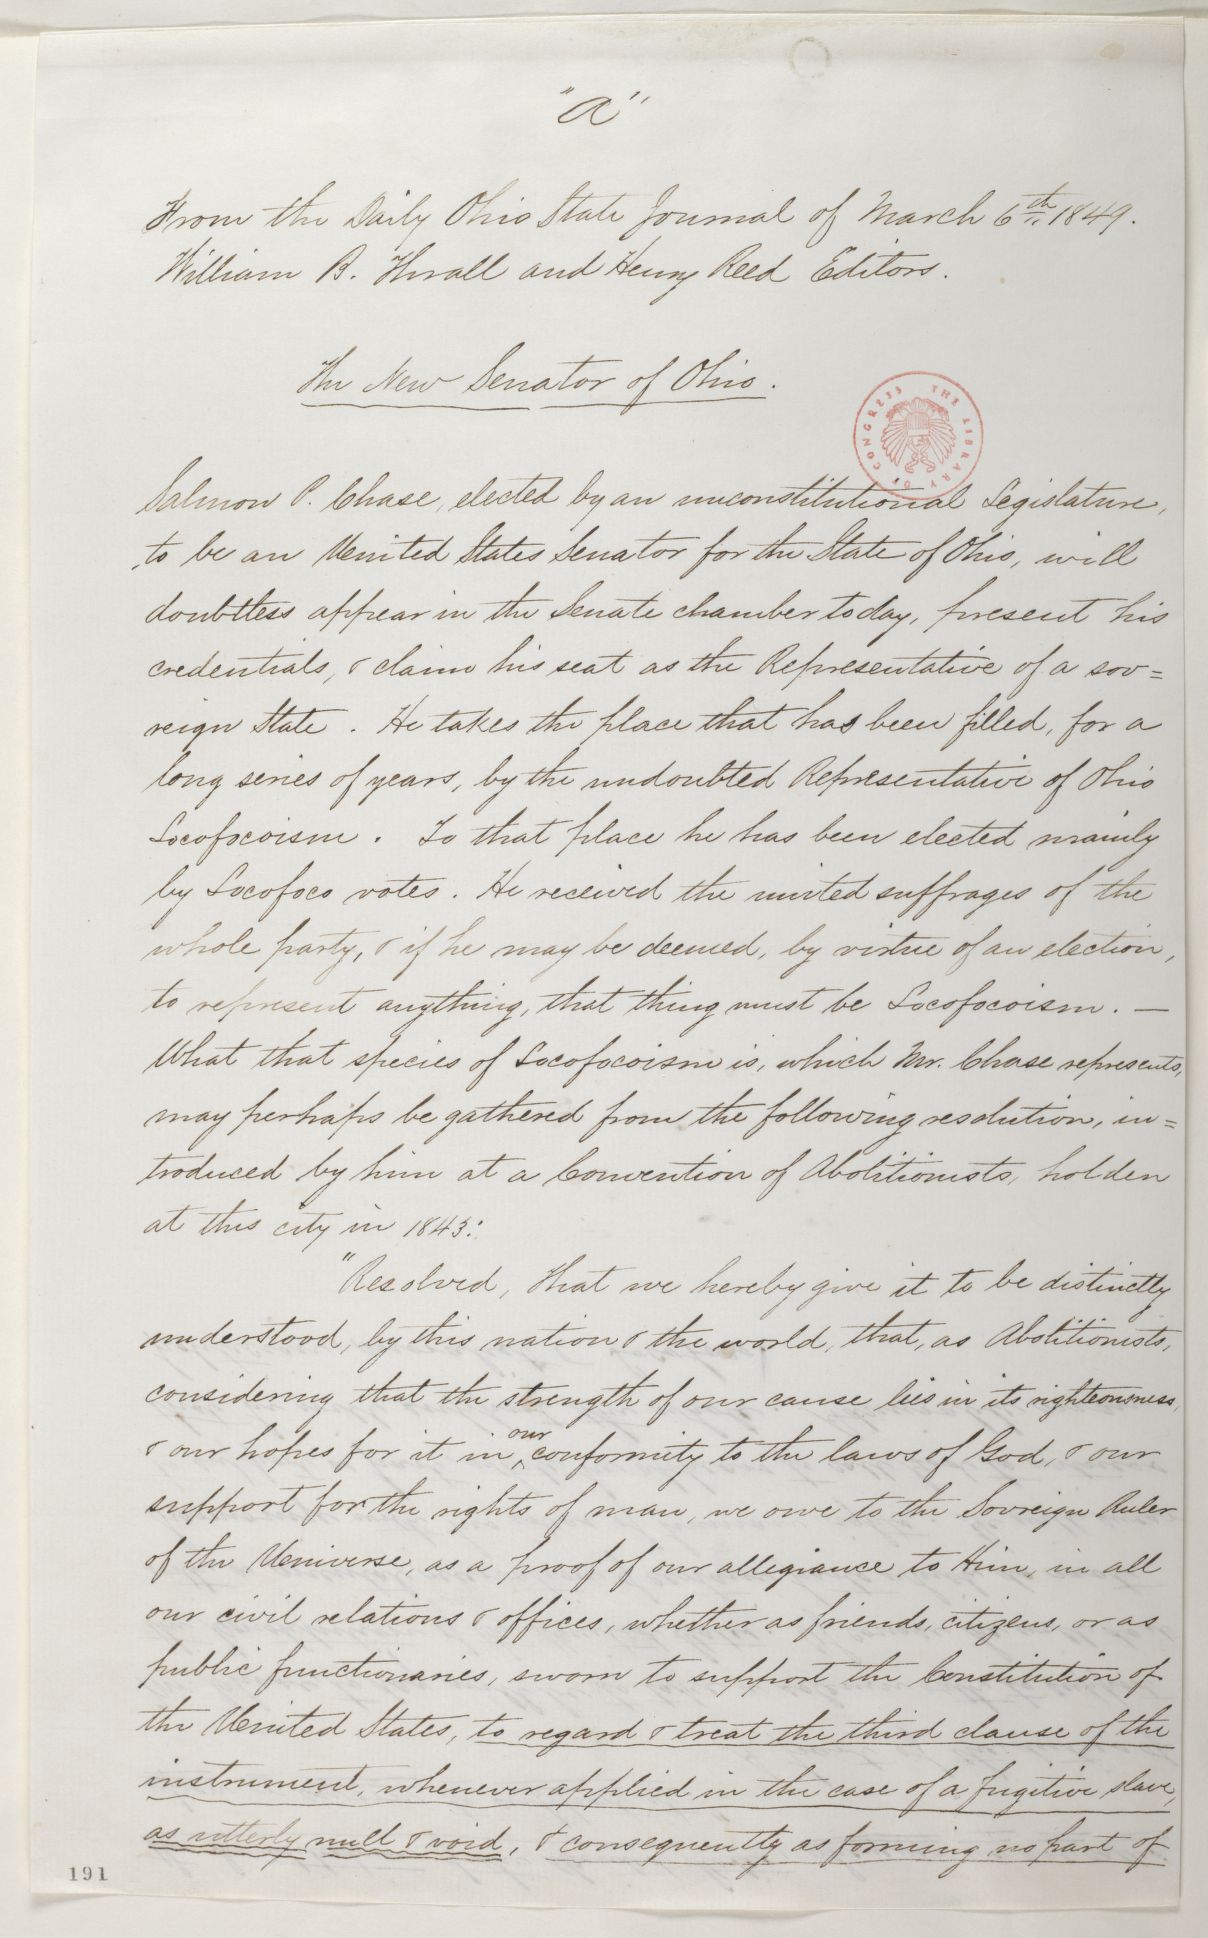 "A"
From the Daily Ohio State Journal of March 6th, 1849.
William B. Thrall and Henry Reed Editors.
The New Senator of Ohio.
THE LIBRARY OF CONGRESS
Salmon P. Chase, elected by an unconstitutional Legislature,
to be an United States Senator for the State of Ohio, will
doubtless appear in the Senate chamber today, present his
credentials, & claim his seat as the Representative of a sov=
reign State. He takes the place that has been filled, for a
long series of years, by the undoubted Representative of Ohio
Locofocoism. To that place he has been elected mainly
by Locofoco votes. He received the united suffrages of the
whole party, & if he may be deemed, by virtue of an election,
to represent anything, that thing must be Locofocoism. —
What that species of Locofocoism is, which Mr. Chase represents,
may perhaps be gathered from the following resolution, in=
troduced by him at a Convention of Abolitionists, holden
at this city in 1843:
"Resolved, That we hereby give it to be distinctly
understood, by this nation & the world, that, as Abolitionists,
considering that the strength of our cause lies in its righteousness,
& our hopes for it in our conformity to the laws of God, & our
support for the rights of man, we owe to the Sovreign Ruler
of the Universe, as a proof of our allegiance to Him, in all
our civil relations & offices, whether as friends, citizens, or as
public functionaries, sworn to support the Constitution of
the United States, to regard & treat the third clause of the
instrument, whenever applied in the case of a fugitive slave,
as utterly null & void, & consequently as forming no part of
191